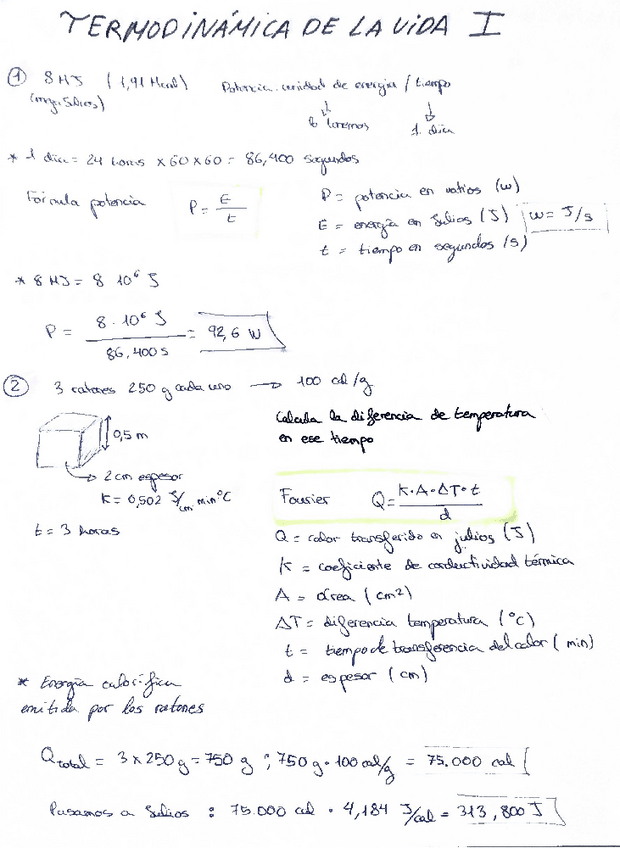 TERMODINÁMICA DE LA VIDA I
① 8 MJ (1,91 Mcal) Potencia: unidad de energía / tiempo
(megaJulios)
lo tenemos 1. día
* 1 día = 24 horas x 60 x 60 = 86,400 segundos
Fórmula potencia P = E/t
P = potencia en vatios (w)
E = energía en Julios (J) w = J/s
t = tiempo en segundos (s)
* 8 MJ = 8 10⁶ J
P = 8 · 10⁶ J / 86,400 s = 92,6 W
② 3 ratones 250 g cada uno → 100 cal/g
0,5 m
2 cm espesor
K = 0,502 J/cm min °C
t = 3 horas
Calcula la diferencia de temperatura
en ese tiempo
Fourier Q = K·A·ΔT·t / d
Q = calor transferido en julios (J)
K = coeficiente de conductividad térmica
A = área (cm²)
ΔT = diferencia temperatura (°C)
t = tiempo de transferencia del calor (min)
d = espesor (cm)
* Energía calorífica
emitida por los ratones
Qtotal = 3 x 250 g = 750 g ; 750 g · 100 cal/g = 75.000 cal
Pasamos a Julios : 75.000 cal · 4,184 J/cal = 313,800 J